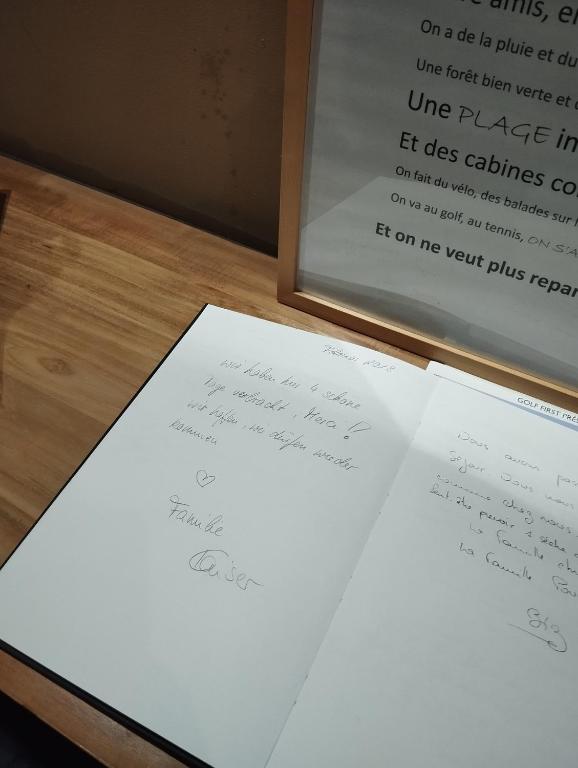 amis, e
On a de la pluie et du
Une forêt bien verte et
Une PLAGE in
Et des cabines co
On fait du vélo, des balades sur l
On va au golf, au tennis, ON S'A
Et on ne veut plus repar
2018
wir haben hier 4 schöne
Tage verbracht, Merci!
wir hoffen, wir dürfen wieder
kommen
Familie
Kaiser
GOLF FIRST PRES
Nous avons pas
séjour. Nous
chez nous
peut être
La famille
La famille